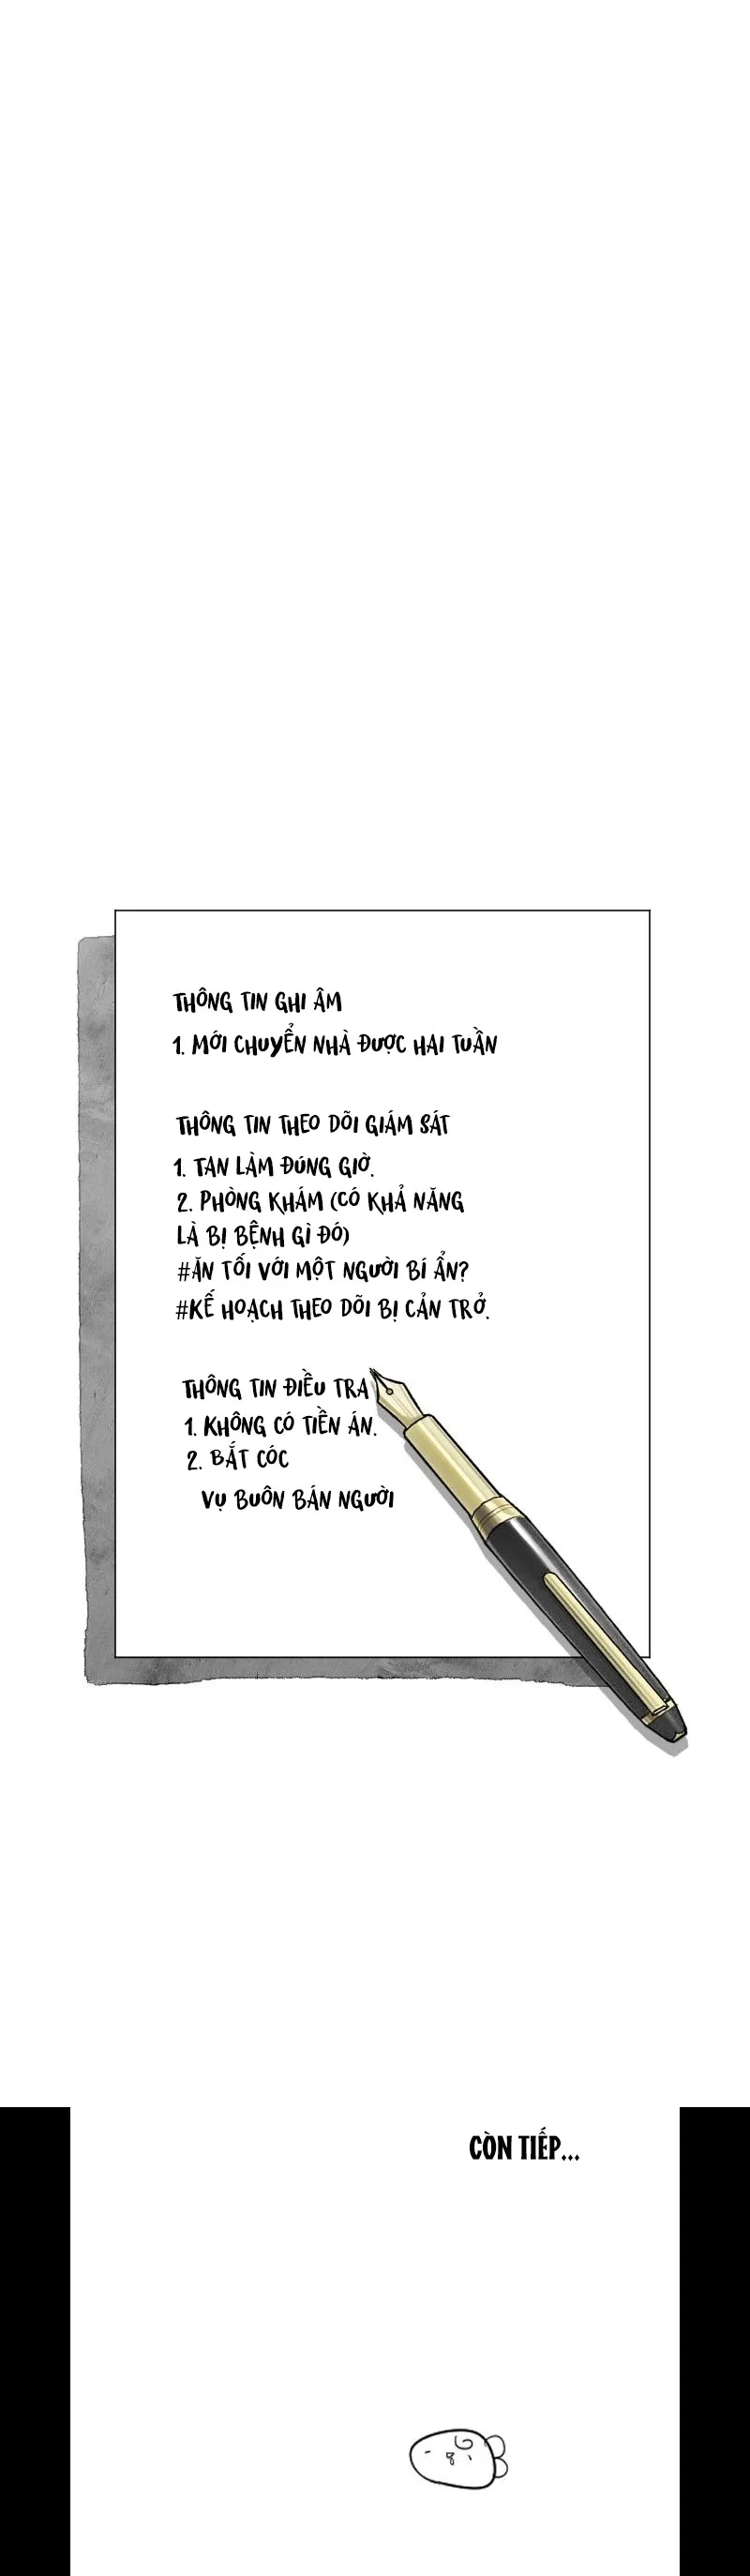 THÔNG TIN GHI ÂM
1. MỚI CHUYỂN NHÀ ĐƯỢC HAI TUẦN
THÔNG TIN THEO DÕI GIÁM SÁT
1. TAN LÀM ĐÚNG GIỜ.
2. PHÒNG KHÁM (CÓ KHẢ NĂNG
LÀ BỊ BỆNH GÌ ĐÓ)
#ĂN TỐI VỚI MỘT NGƯỜI BÍ ẨN?
#KẾ HOẠCH THEO DÕI BỊ CẢN TRỞ.
THÔNG TIN ĐIỀU TRA
1. KHÔNG CÓ TIỀN ÁN.
2. BẮT CÓC
VỤ BUÔN BÁN NGƯỜI
CÒN TIẾP...